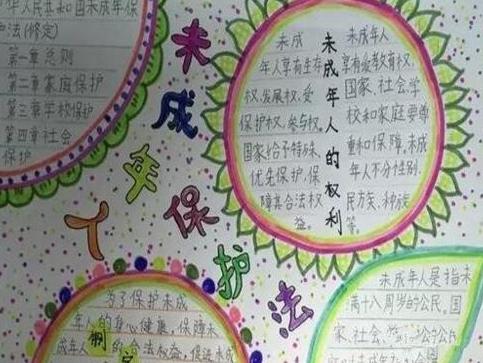 华人民共和国未成年保
护法(修定)
第一章总则
第二章家庭保护
第三章学校保护
第四章社会
保护
未成年人保护法
未成
年人享有生存
权、发展权、受
保护权、参与权。
国家给予特殊、
优先保护、保
障其合法权
益。
未成年人的权利
未成年人
享有受教育权,
国家、社会学
校和家庭要尊
重和保障、未成
年人不分性别、
民族、种族
等。
为了保护未成
年人的身心健康,保障未
成年人的合法权益,促进未成
制
未成年人是指未
满十八周岁的公民。国
家、社会、学